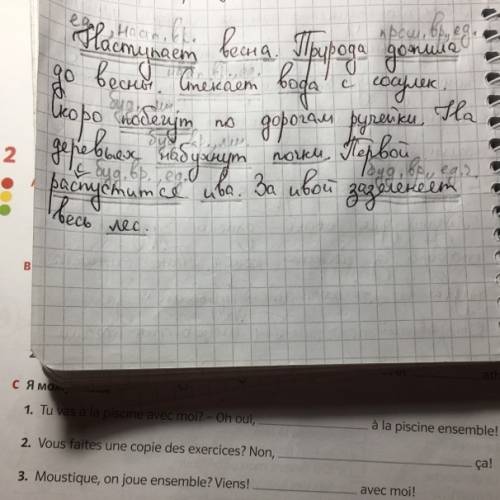 ед., наст. вр. прош. вр., ед.
Наступает весна. Природа дожила
до весны. Стекает вода с сосулек.
буд.
Скоро побегут по дорогам ручейки. На
деревьях набухнут почки. Первой
буд. вр., ед. буд. вр., ед. ч.
распустится ива. За ивой зазеленеет
весь лес.
2
B
C Я мо
1. Tu vas à la piscine avec moi? – Oh oui, à la piscine ensemble!
2. Vous faites une copie des exercices? Non, ça!
3. Moustique, on joue ensemble? Viens! avec moi!